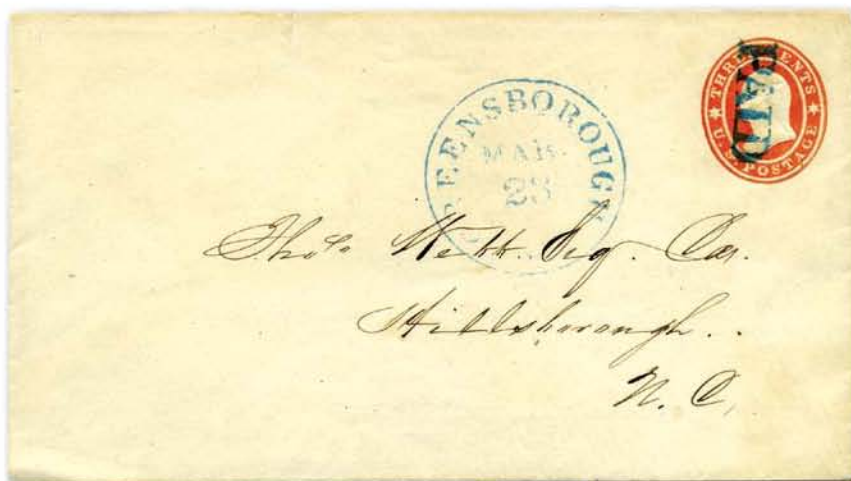 THREE CENTS
U.S. POSTAGE
PAID
GREENSBOROUGH
MAR
23
Thos Webb. Esq. Car.
Hillsborough..
N. C.